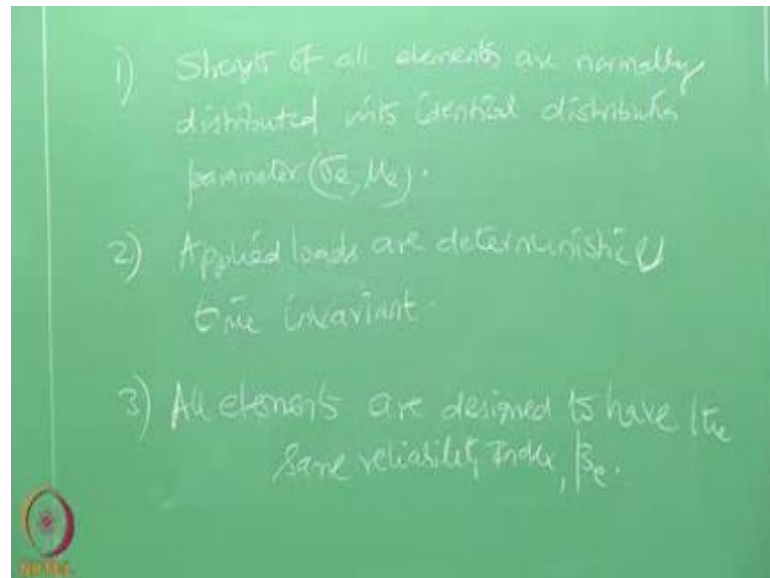 1) Strength of all elements are normally
distributed with identical distribution
parameter (σe, μe).
2) Applied loads are deterministic &
time invariant.
3) All elements are designed to have the
same reliability index, βe.
NPTEL